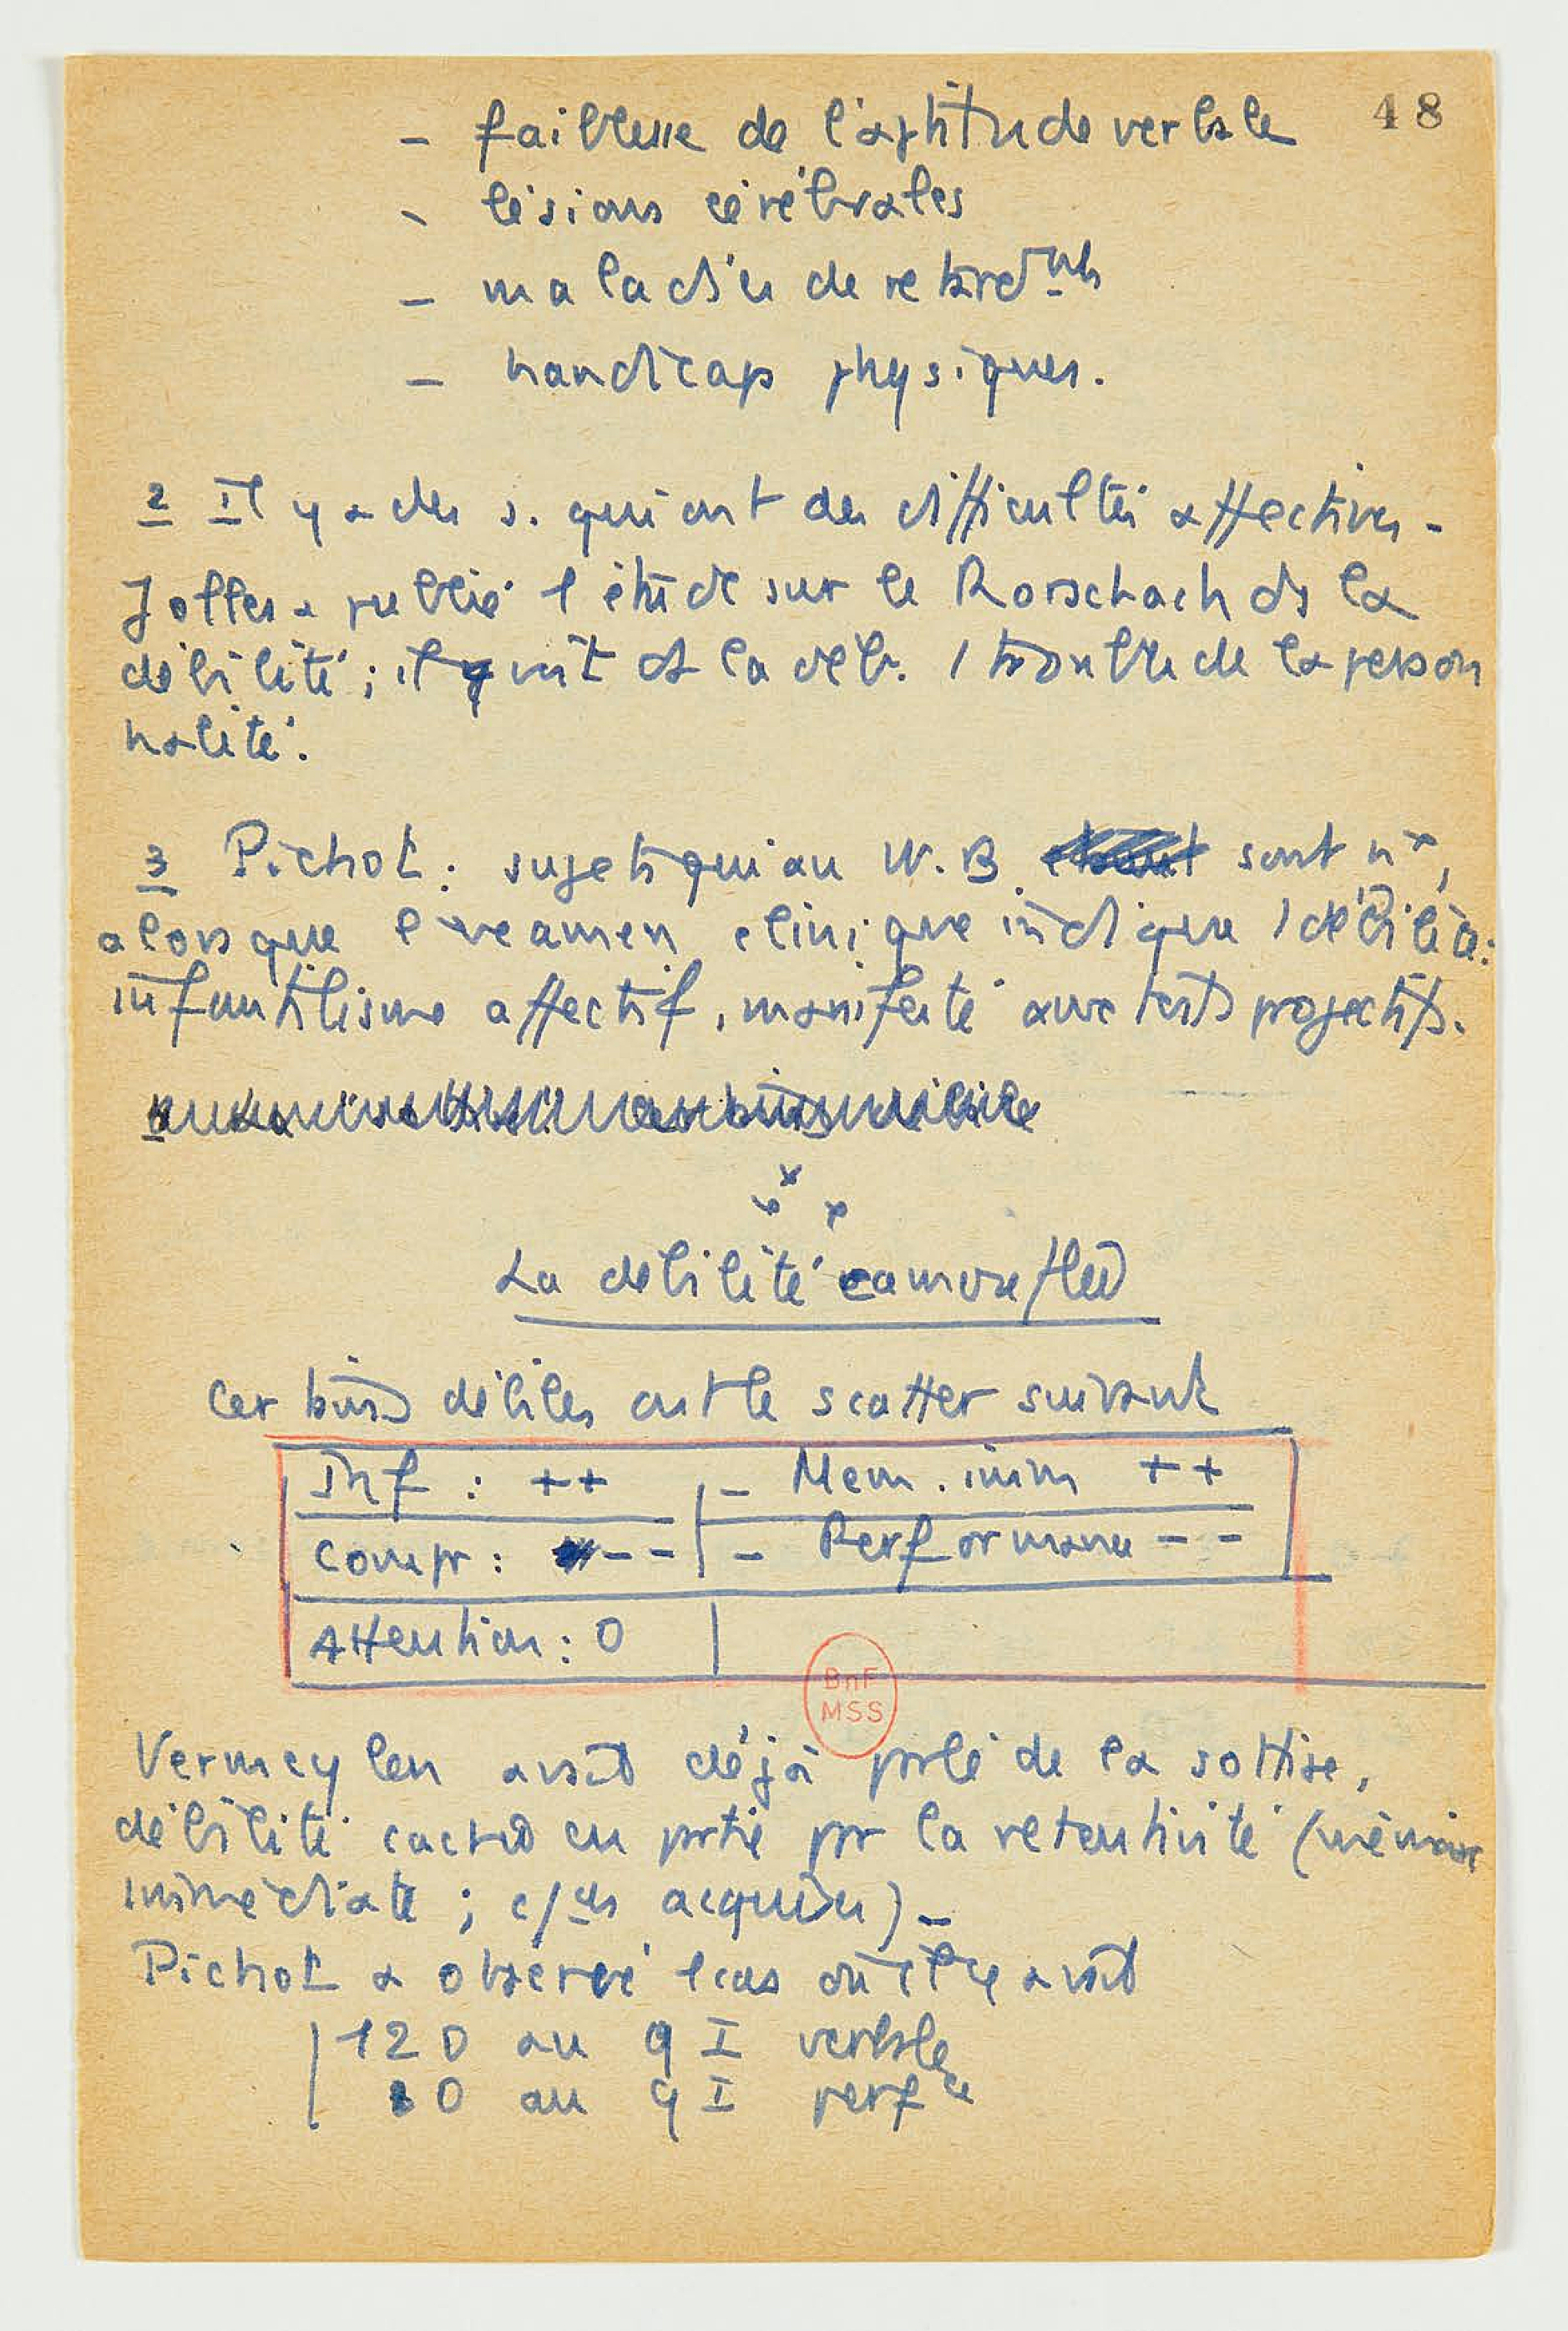 48
- faiblesse de l'aptitude verbale
- lésions cérébrales
- maladies de retardnts
- handicaps physiques.
2 Il y a des s. qui ont des difficultés affectives -
Jolles a publié 1 étude sur le Rorschach ds la
débilité ; il y voit ds la déb. 1 trouble de la person
nalité.
3 Pichot : sujets qui au W.B. sont nx,
alors que l'examen clinique indique 1 débilité :
infantilisme affectif, manifesté aux tests projectifs.
x x x
La débilité camouflée
Certains débiles ont le scatter suivant
Inf : ++ | - Mem. imm ++
Compr : -- | - Performance --
Attention : 0 |
BnF
MSS
Vermeylen avait déjà parlé de la sottise,
débilité cachée en partie par la retentivité (mémoire
immédiate ; c/ces acquises) -
Pichot a observé 1 cas où il y avait
120 au QI verbale
80 au QI perfce